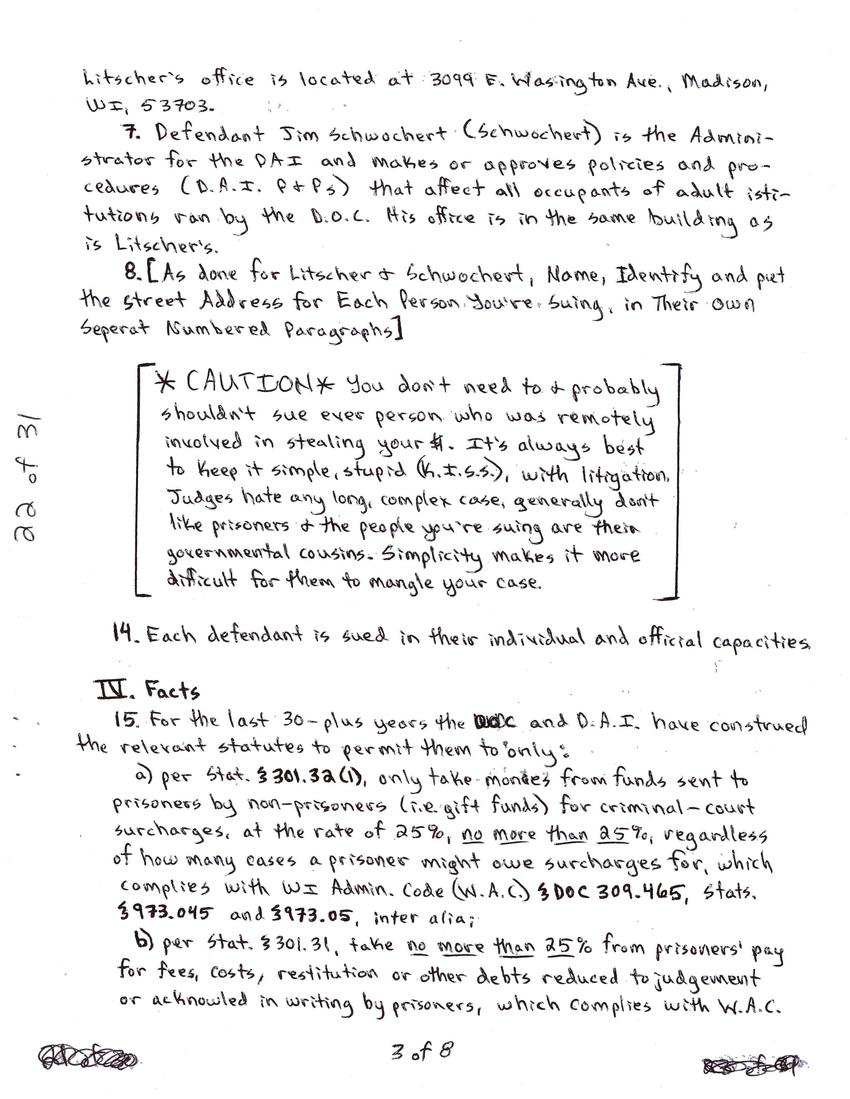 Litscher's office is located at 3099 E. Wasington Ave., Madison,
WI, 53703.
7. Defendant Jim Schwochert (Schwochert) is the Admini-
strator for the DAI and makes or approves policies and pro-
cedures (D.A.I. P+Ps) that affect all occupants of adult isti-
tutions ran by the D.O.C. His office is in the same building as
is Litscher's.
8. [As done for Litscher & Schwochert, Name, Identify and put
the street Address for Each Person You're Suing, in Their Own
Seperat Numbered Paragraphs]
* CAUTION * You don't need to & probably
shouldn't sue ever person who was remotely
involved in stealing your $. It's always best
to keep it simple, stupid (K.I.S.S.), with litigation.
Judges hate any long, complex case, generally don't
like prisoners & the people you're suing are their
governmental cousins. Simplicity makes it more
difficult for them to mangle your case.
22 of 31
14. Each defendant is sued in their individual and official capacities.
IV. Facts
15. For the last 30-plus years the DOC and D.A.I. have construed
the relevant statutes to permit them to only:
a) per Stat. §301.32(1), only take monies from funds sent to
prisoners by non-prisoners (i.e. gift funds) for criminal-court
surcharges, at the rate of 25%, no more than 25%, regardless
of how many cases a prisoner might owe surcharges for, which
complies with WI Admin. Code (W.A.C.) §DOC 309.465, Stats.
§973.045 and §973.05, inter alia;
b) per Stat. §301.31, take no more than 25% from prisoners' pay
for fees, costs, restitution or other debts reduced to judgement
or acknowled in writing by prisoners, which complies with W.A.C.
3 of 8